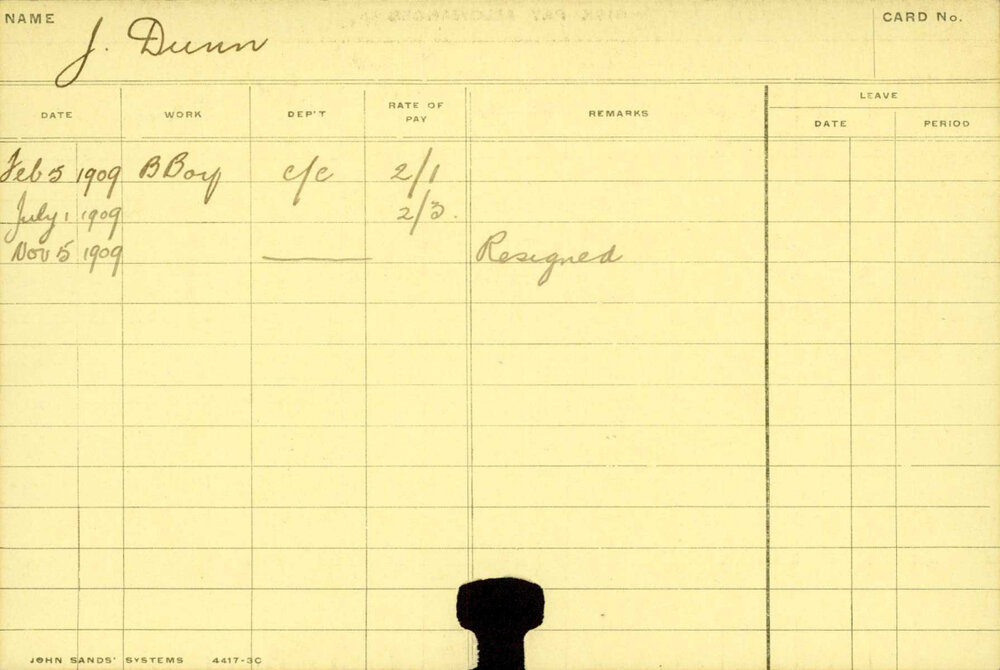 NAME J. Dunn CARD No.
LEAVE
DATE WORK DEP'T RATE OF PAY REMARKS DATE PERIOD
Feb 5 1909 B Boy c/c 2/1
July 1 1909 2/3.
Nov 5 1909 Resigned
JOHN SANDS' SYSTEMS 4417-3C